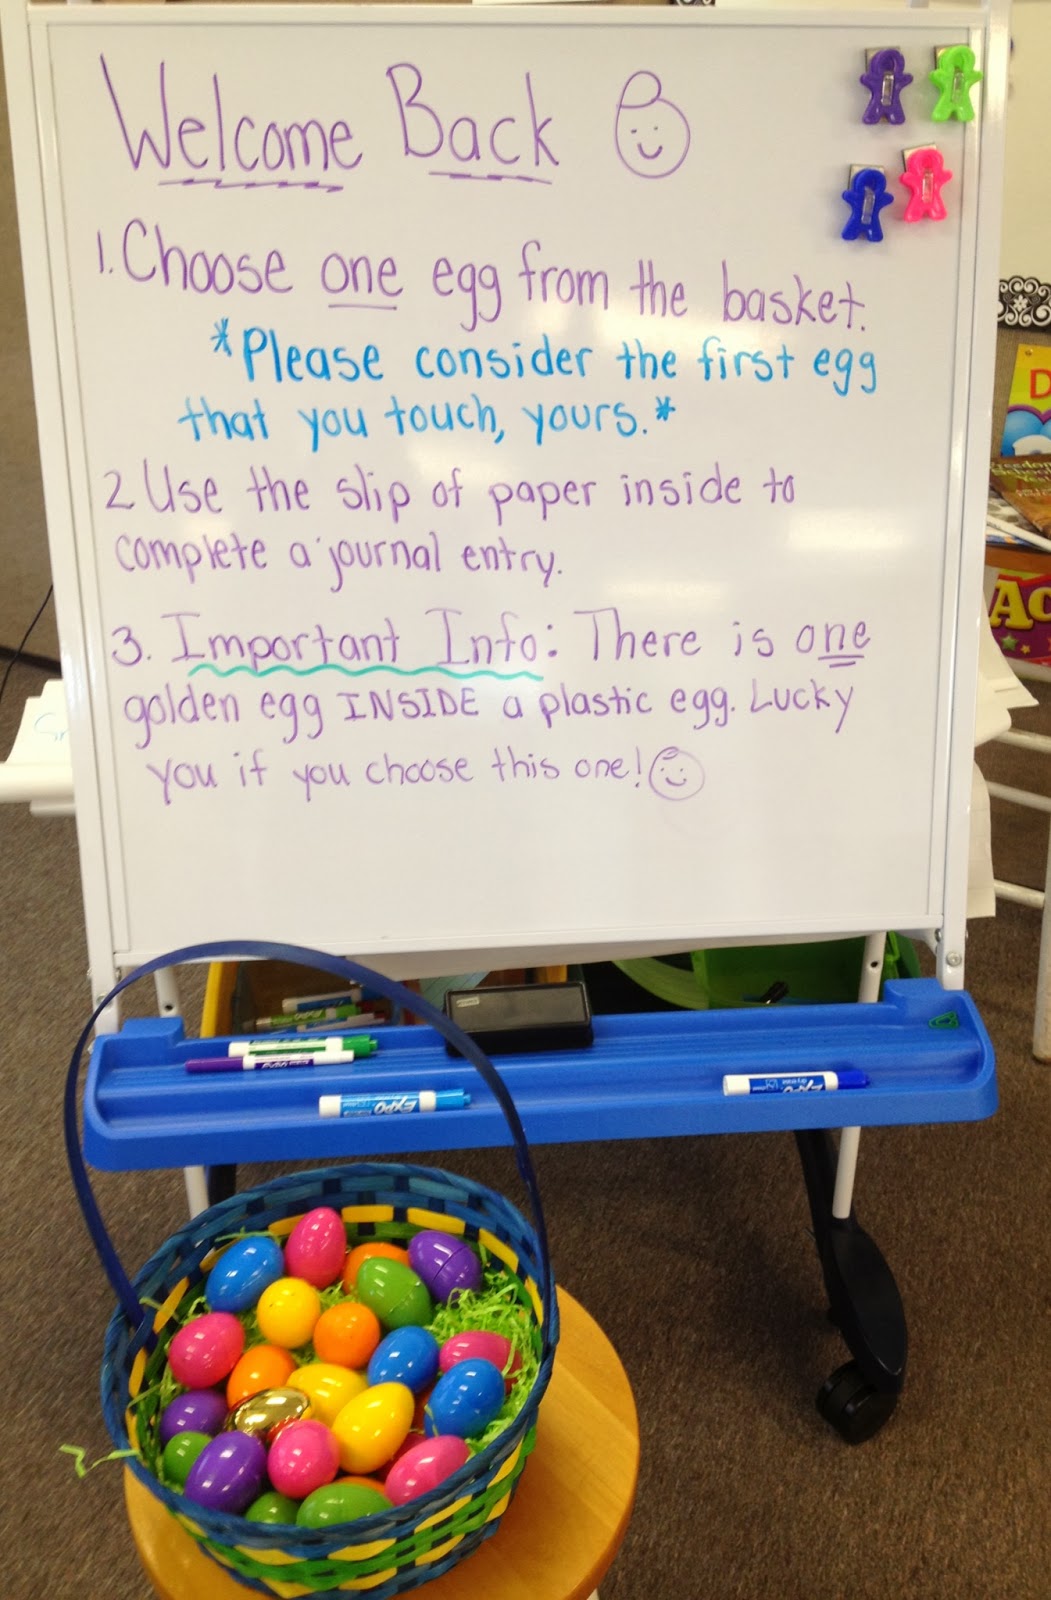 Welcome Back
1. Choose one egg from the basket.
*Please consider the first egg
that you touch, yours.*
2. Use the slip of paper inside to
complete a journal entry.
3. Important Info: There is one
golden egg INSIDE a plastic egg. Lucky
you if you choose this one!
EXPO
EXPO
D
Ac